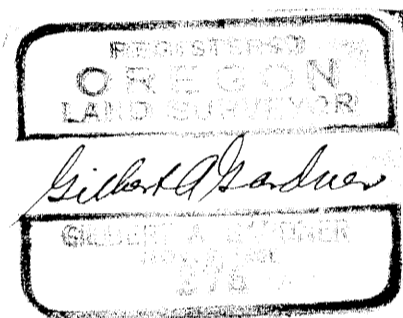 REGISTERED
OREGON
LAND SURVEYOR
Gilbert A Gardner
GILBERT A. GARDNER